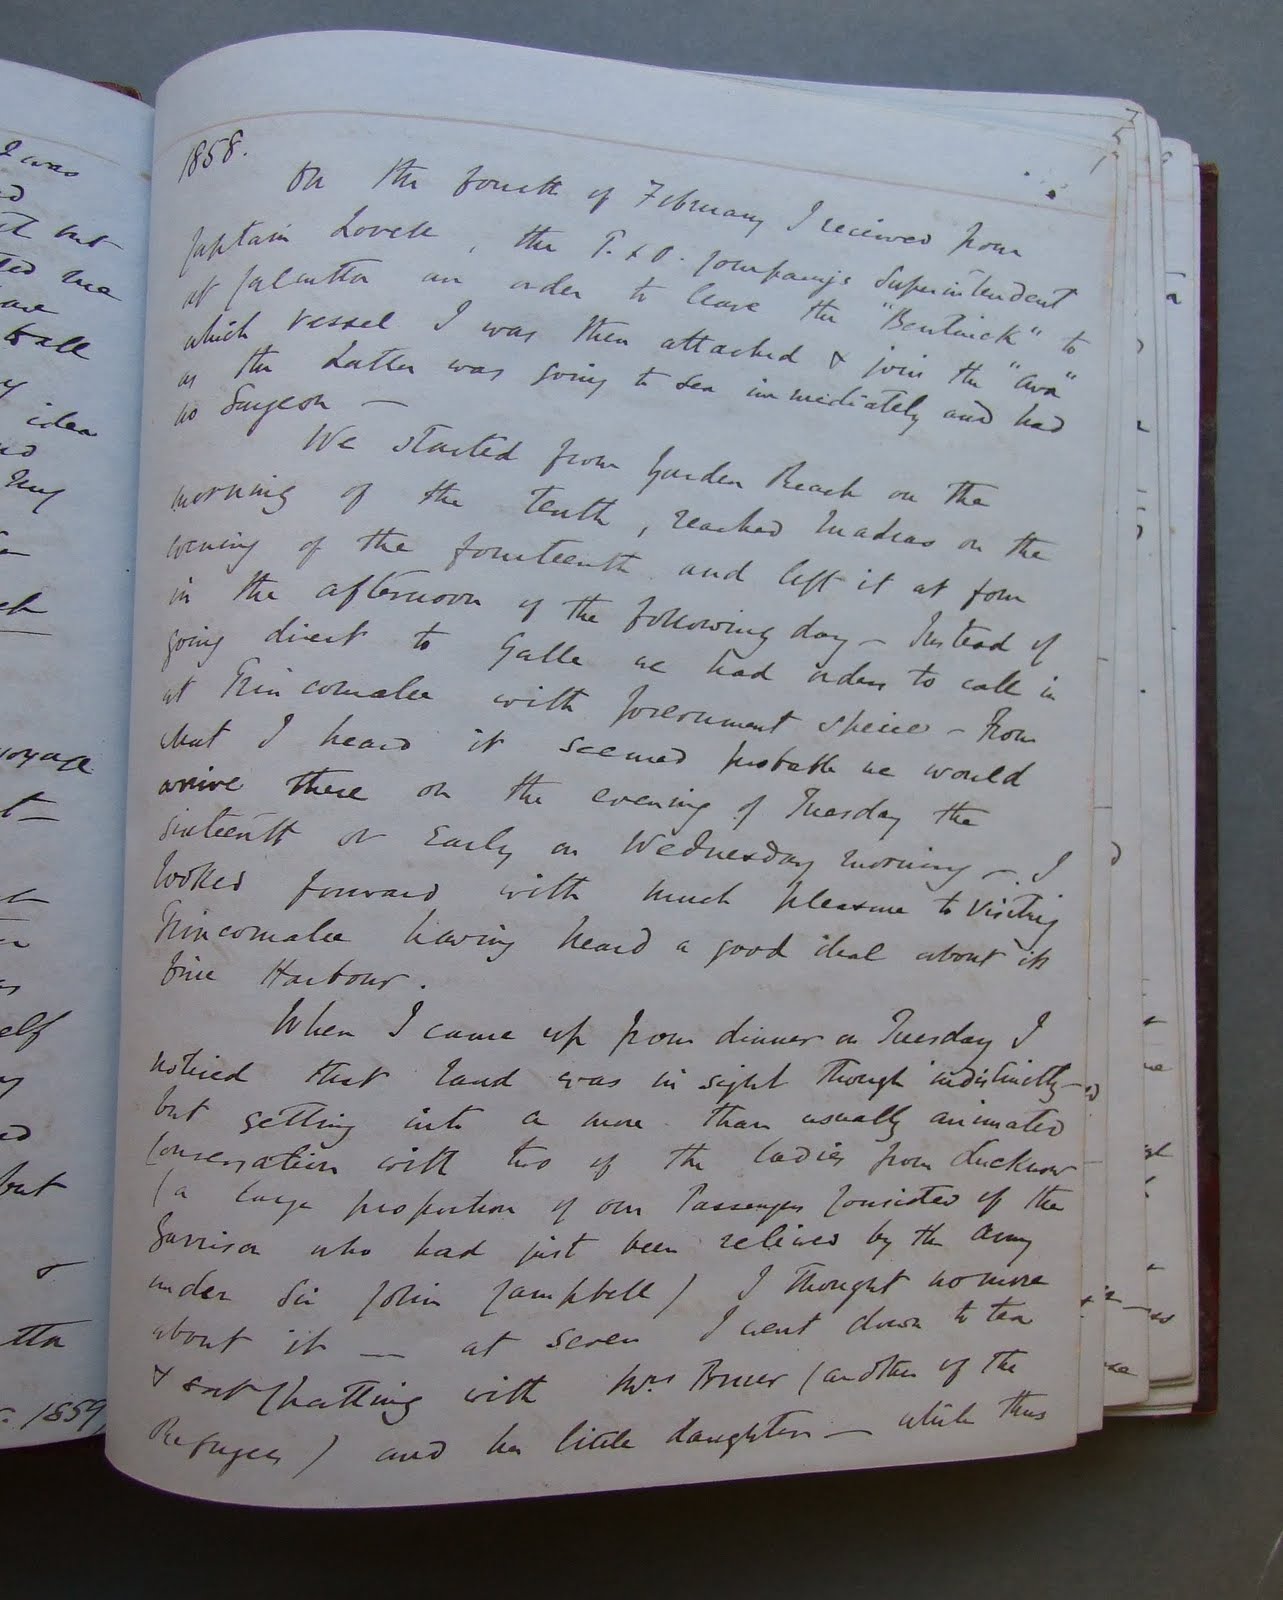 I was
but
me
idea
my
voyage
self
but
1859
1858.
On the fourth of February I received from
Captain Lovell, the P. & O. Company's Superintendent
at Calcutta an order to leave the "Bentinck" to
which vessel I was then attached & join the "Ava"
as the Latter was going to Sea immediately and had
no Surgeon —
We started from Garden Reach on the
morning of the tenth, reached Madras on the
evening of the fourteenth and left it at four
in the afternoon of the following day — Instead of
going direct to Galle we had orders to call in
at Trincomalee with Government specie — From
what I heard it seemed probable we would
arrive there on the evening of Tuesday the
Sixteenth or Early on Wednesday morning — I
looked forward with much pleasure to visiting
Trincomalee having heard a good deal about its
fine Harbour.
When I came up from dinner on Tuesday I
noticed that land was in sight though indistinctly —
but getting into a more than usually animated
Conversation with two of the ladies from Lucknow
(a large proportion of our Passengers Consisted of the
Garrison who had just been relieved by the Army
under Sir Colin Campbell) I thought no more
about it — at seven I went down to tea
& sat Chatting with Mrs Bruer (another of the
Refugees) and her little daughter — while thus